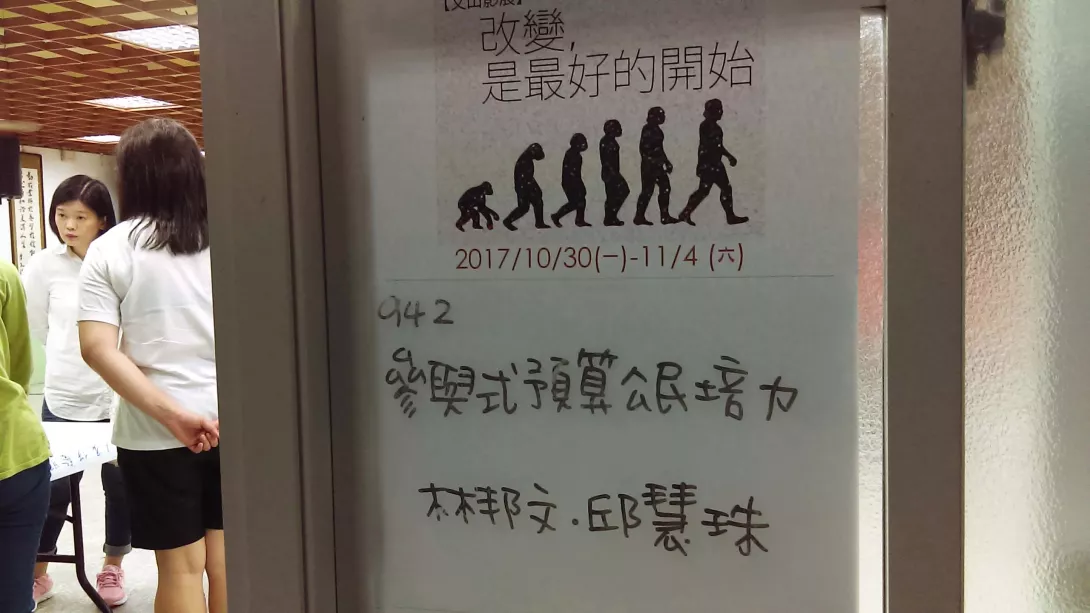 【文山影展】
改變,
是最好的開始
2017/10/30(一)-11/4 (六)
942
參與式預算公民培力
林邦文.邱慧珠